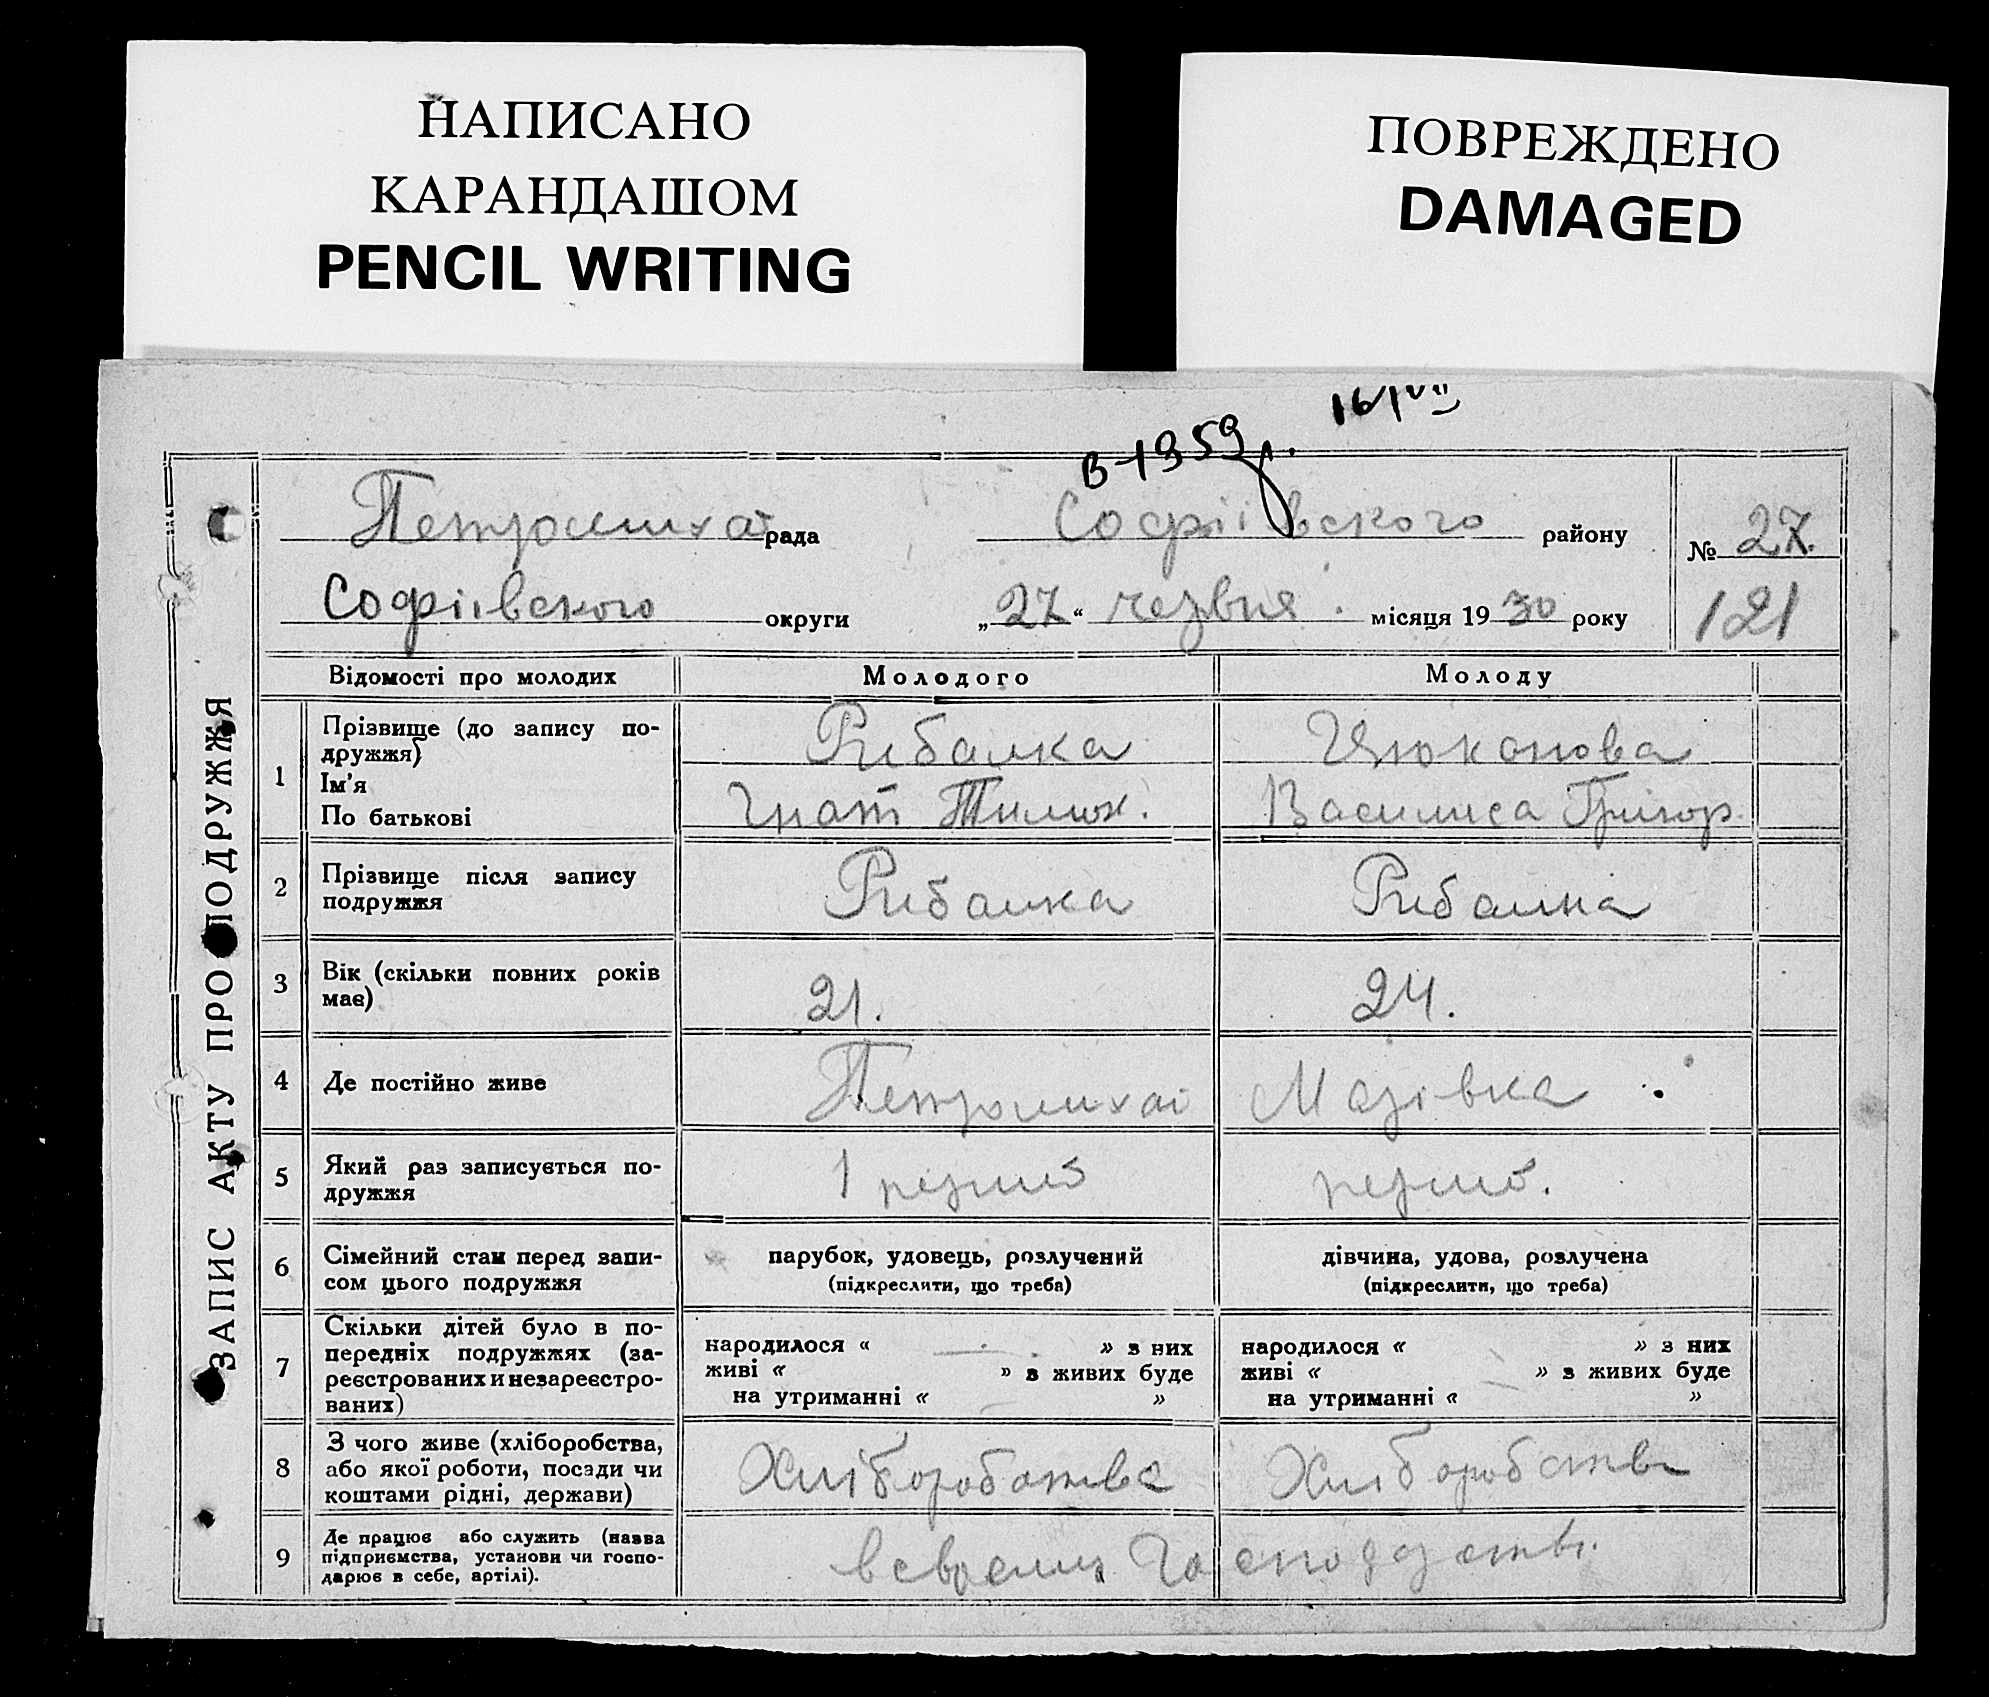 НАПИСАНО
КАРАНДАШОМ
PENCIL WRITING
ПОВРЕЖДЕНО
DAMAGED
в 1959 р. 16/VII
рада Софіівського району № 27.
Софіівського округи „27“ червня місяця 1930 року 121
ЗАПИС АКТУ ПРО ПОДРУЖЖЯ
Відомості про молодих Молодого Молоду
1 Прізвище (до запису по-
дружжя) Рибалка
Ім'я
По батькові Гнат Тимох. Василиса Григор.
2 Прізвище після запису
подружжя Рибалка Рибалка
3 Вік (скільки повних років
має) 21. 24.
4 Де постійно живе
5 Який раз записується по-
дружжя 1 перший перший.
6 Сімейний стан перед запи-
сом цього подружжя
парубок, удовець, розлучений
(підкреслити, що треба)
дівчина, удова, розлучена
(підкреслити, що треба)
7 Скільки дітей було в по-
передніх подружжях (за-
реєстрованих и незареєстро-
ваних)
народилося « » з них
живі « » з живих буде
на утриманні « »
народилося « » з них
живі « » з живих буде
на утриманні « »
8 З чого живе (хліборобства,
або якої роботи, посади чи
коштами рідні, держави)
Хліборобства Хліборобства
9 Де працює або служить (назва
підприємства, установи чи госпо-
дарює в себе, артілі).
в своему